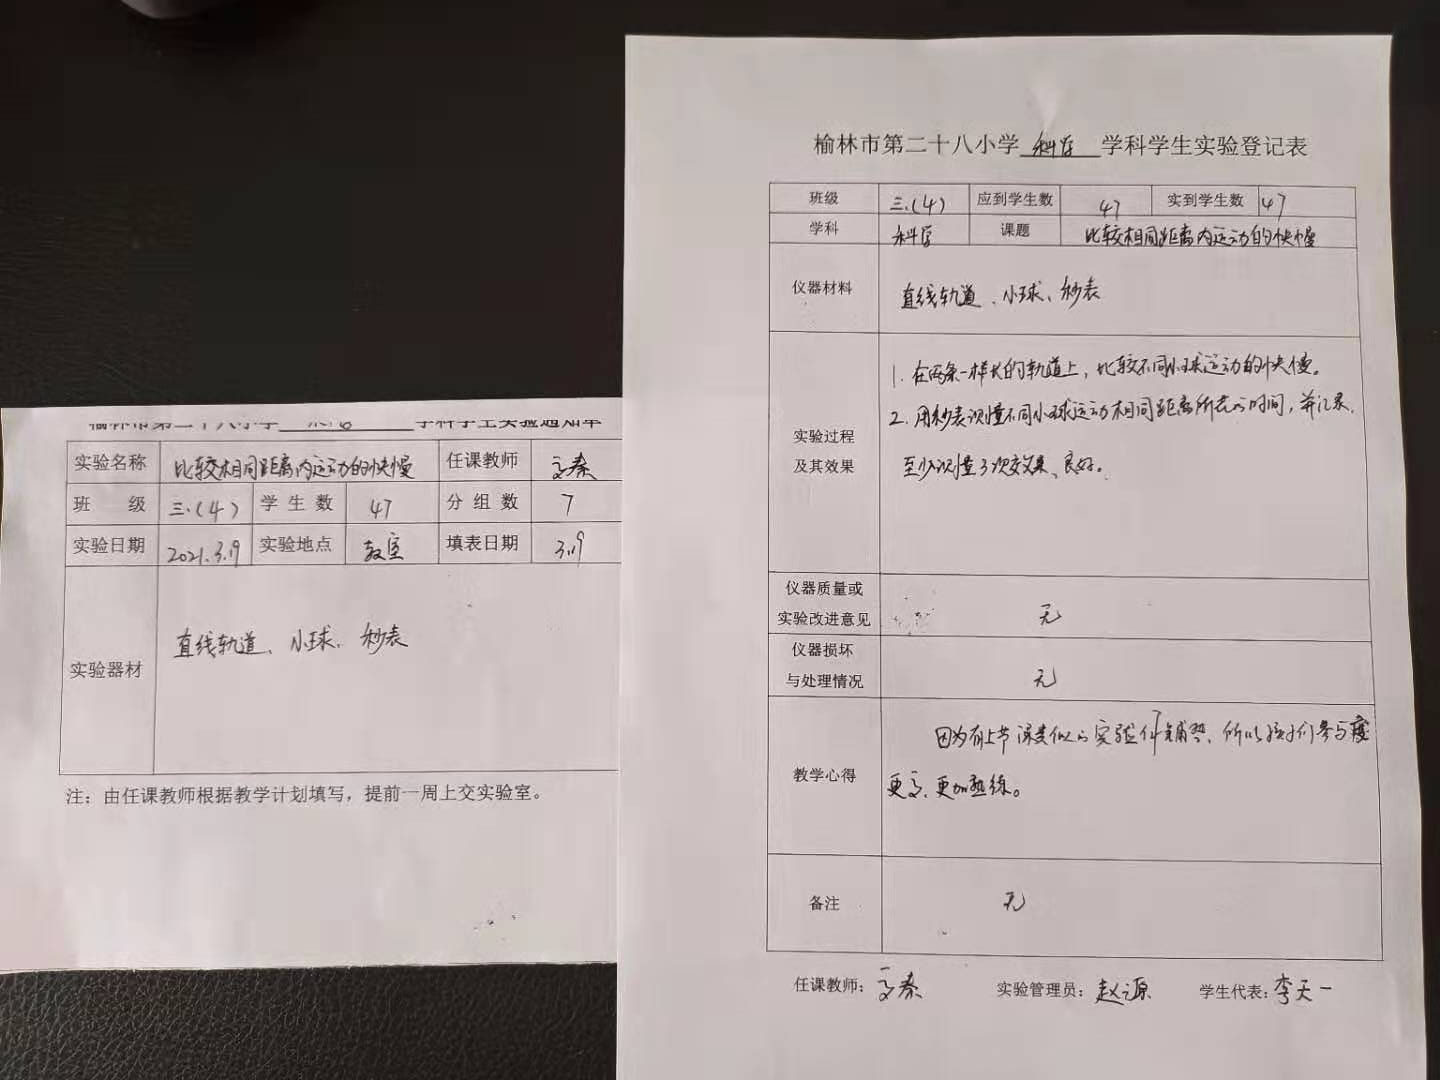 榆林市第二十八小学 科学 学科学生实验通知单
实验名称 比较相同距离内运动的快慢 任课教师
班 级 三.(4) 学生数 47 分组数 7
实验日期 2021.3.19 实验地点 教室 填表日期 3.19
实验器材 直线轨道、小球、秒表
注：由任课教师根据教学计划填写，提前一周上交实验室。
榆林市第二十八小学 科学 学科学生实验登记表
班级 三.(4) 应到学生数 47 实到学生数 47
学科 科学 课题 比较相同距离内运动的快慢
仪器材料 直线轨道、小球、秒表
实验过程
及其效果
1. 在两条一样长的轨道上，比较不同小球运动的快慢。
2. 用秒表测量不同小球运动相同距离所花的时间，并记录.
至少测量3次效果、良好。
仪器质量或
实验改进意见 无
仪器损坏
与处理情况 无
教学心得
因为有上节课类似的实验作铺垫、所以孩子们参与度
更高、更加熟练。
备注 无
任课教师： 实验管理员：赵源 学生代表：李天一